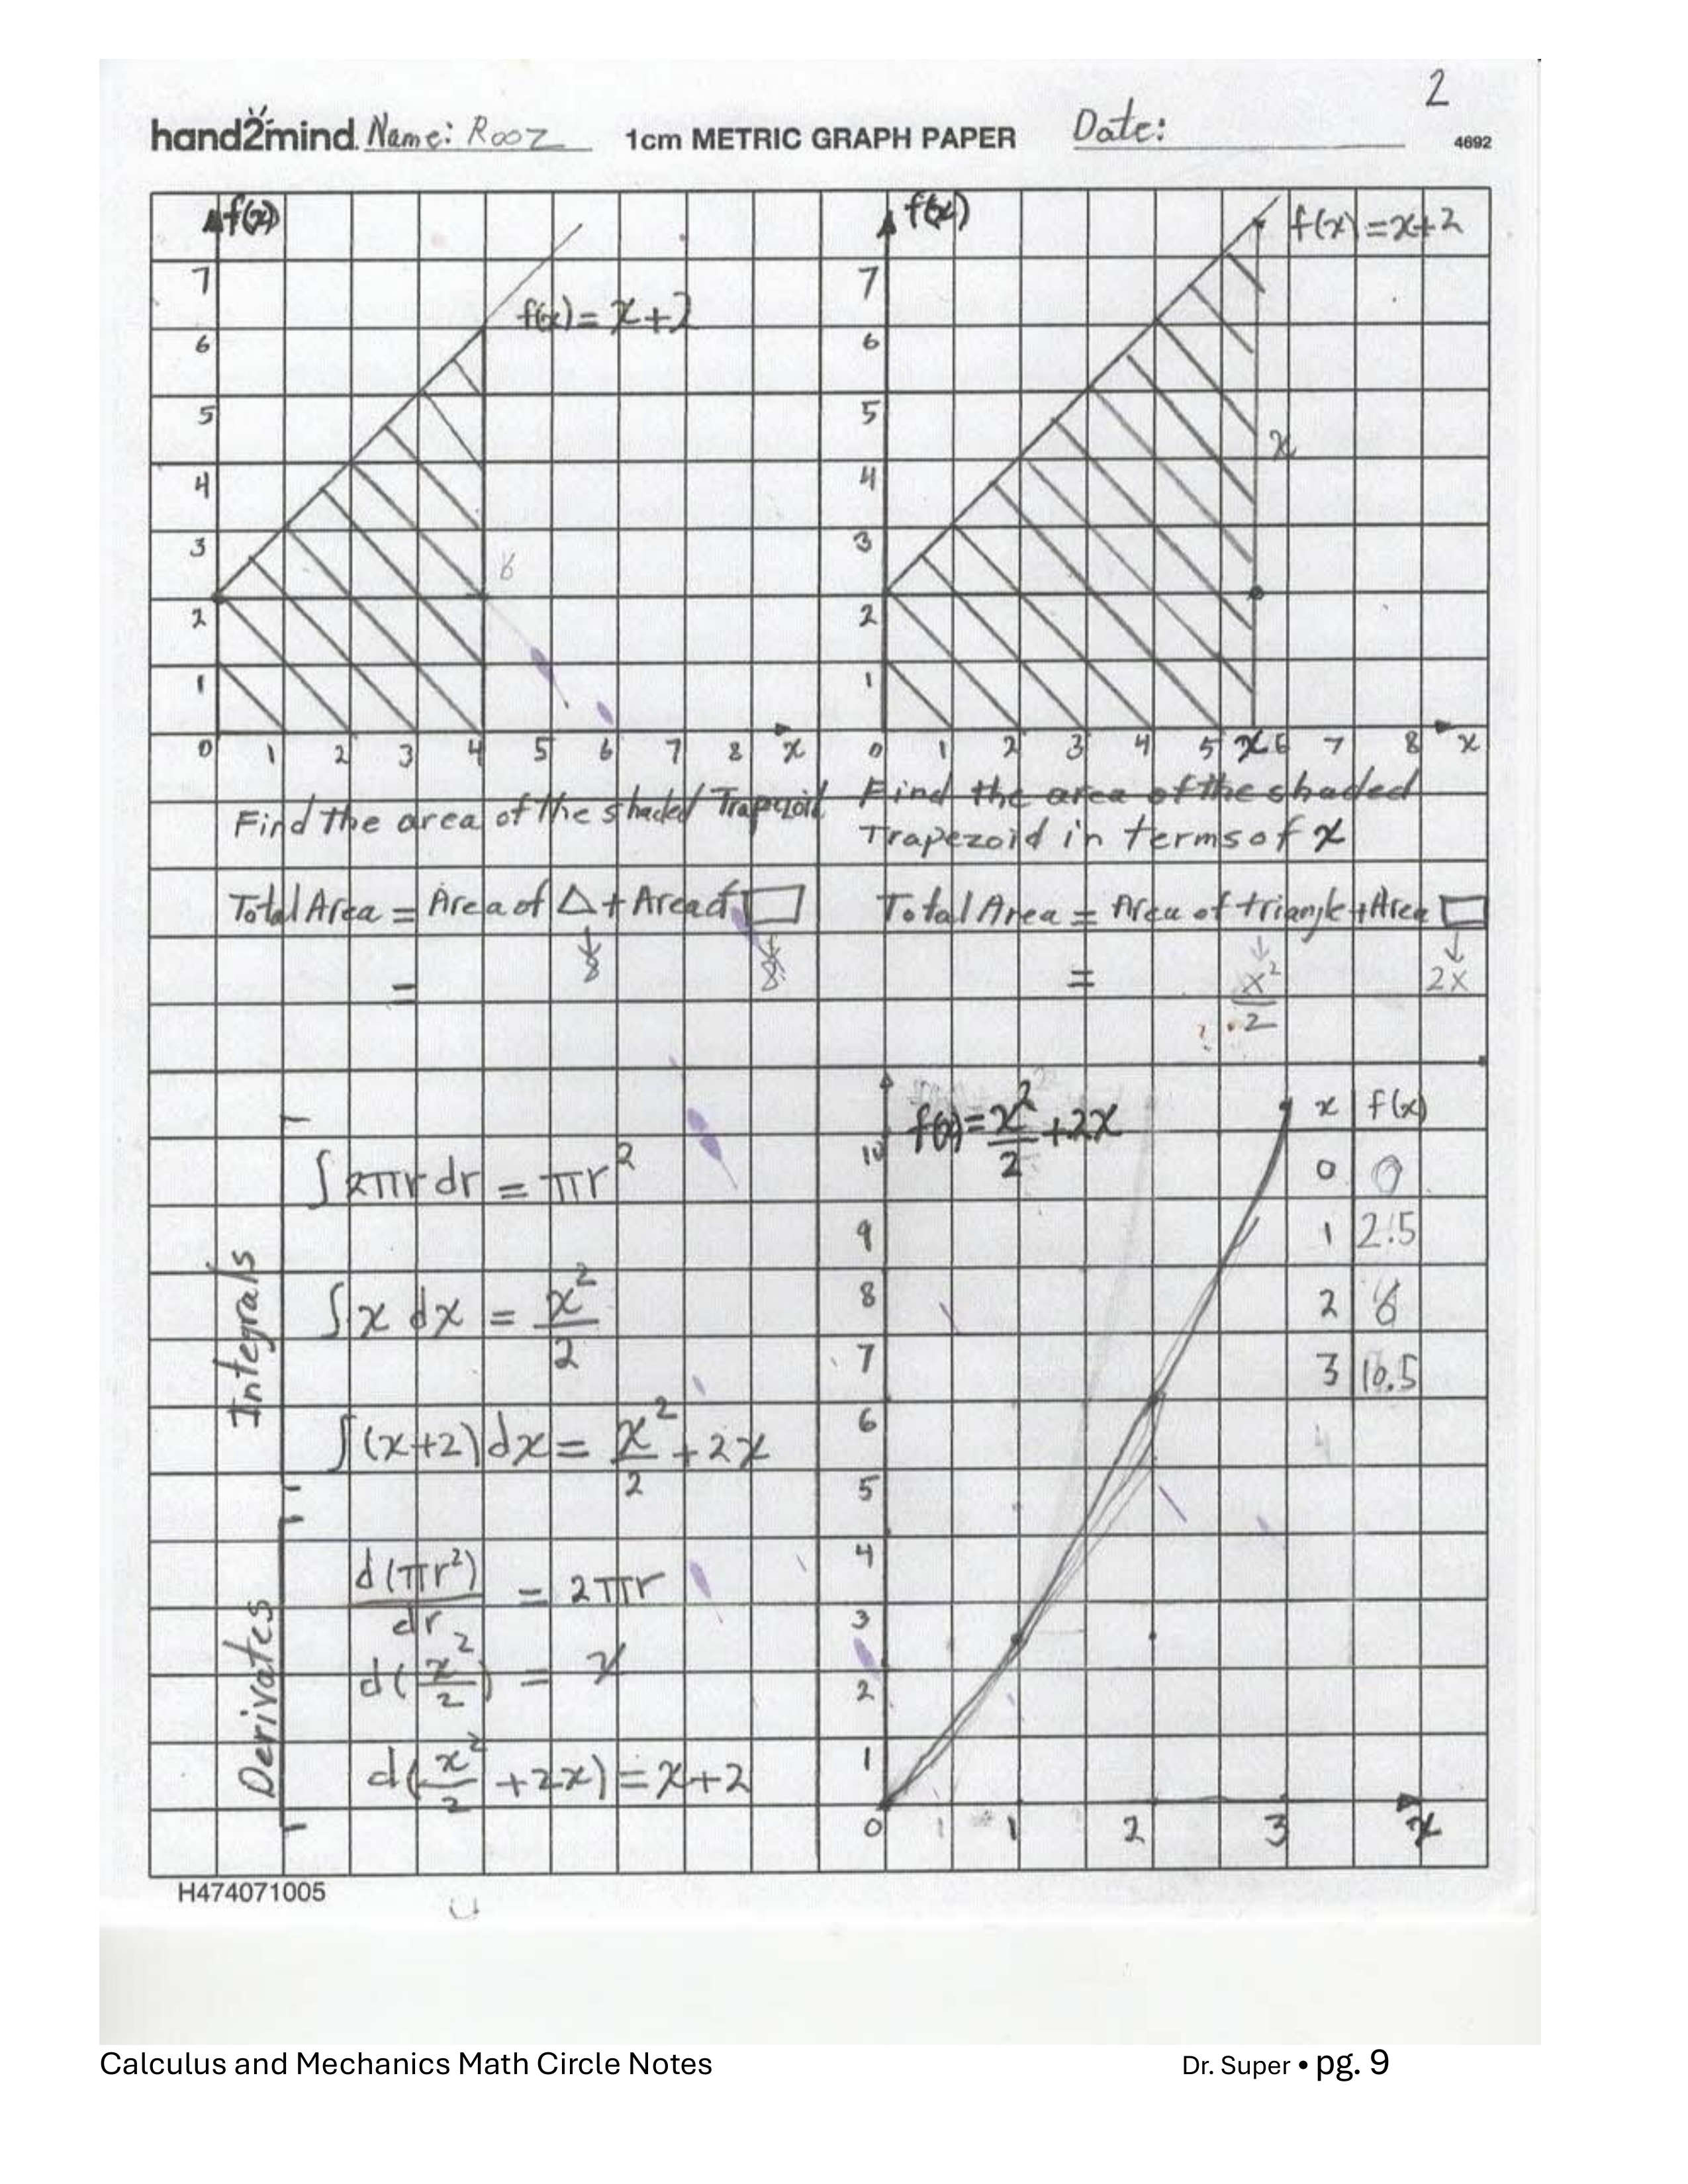 2
hand2mind. Name: Rooz 1cm METRIC GRAPH PAPER Date: 4692
f(x)
7
6
5
4
3
2
1
0 1 2 3 4 5 6 7 8 x
f(x) = x+2
6
f(x)
7
6
5
4
3
2
1
0 1 2 3 4 5 x 6 7 8 x
f(x) = x+2
x
Find the area of the shaded Trapezoid
Total Area = Area of △ + Area of ▭
↓ ↓
= 8 8
Find the area of the shaded
Trapezoid in terms of x
Total Area = Area of triangle + Area ▭
↓ ↓
= x²/2 2x
Integrals
∫ 2πr dr = πr²
∫ x dx = x²/2
∫ (x+2) dx = x²/2 + 2x
Derivates
d(πr²)/dr = 2πr
d(x²/2) = x
d(x²/2 + 2x) = x+2
f(x) = x²/2 + 2x
10
9
8
7
6
5
4
3
2
1
0 1 2 3 x
x f(x)
0 0
1 2.5
2 6
3 10.5
4
H474071005
Calculus and Mechanics Math Circle Notes Dr. Super • pg. 9